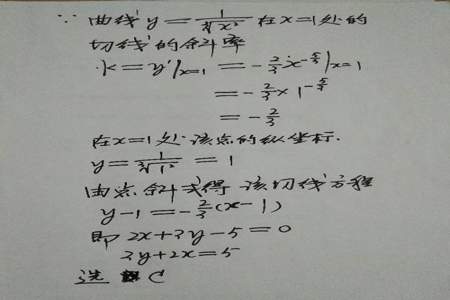 ∵ 曲线 y = 1/∛x² 在 x=1 处的
切线的斜率
k = y'|x=1 = -2/3 x^(-5/3)|x=1
= -2/3 × 1^(-5/3)
= -2/3
在 x=1 处该点的纵坐标.
y = 1/∛1² = 1
由点斜式得该切线方程
y-1 = -2/3(x-1)
即 2x+3y-5=0
3y+2x=5
选 C